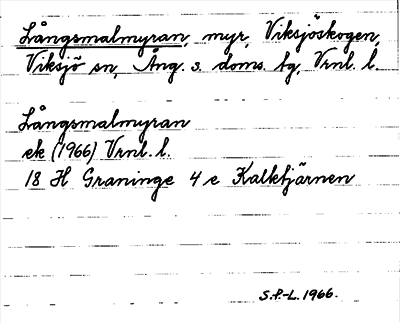 Långsmalmyran, myr, Viksjöskogen,
Viksjö sn, Ång. s. doms. tg, Vrnl. l.
Långsmalmyran
ek (1966) Vrnl. l.
18 H Graninge 4 e Kalktjärnen
S.F.-L. 1966.